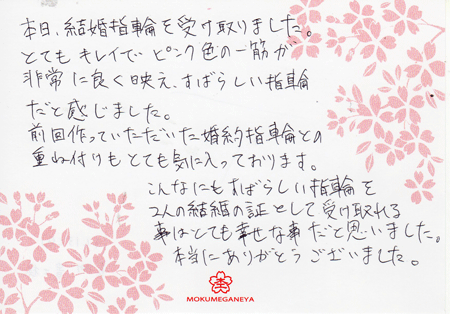 本日、結婚指輪を受け取りました。
とてもキレイでピンク色の一筋が
非常に良く映え、すばらしい指輪
だと感じました。
前回作っていただいた婚約指輪との
重ね付けもとても気に入っております。
こんなにもすばらしい指輪を
2人の結婚の証として受け取れる
事はとても幸せな事だと思いました。
本当にありがとうございました。
MOKUMEGANEYA